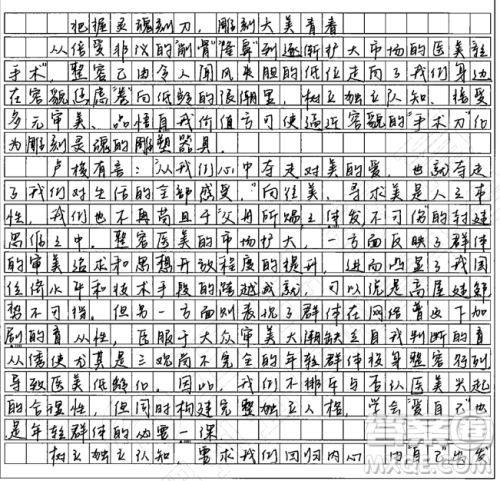 把握灵魂刻刀，雕刻大美青春
从倍受非议的“削骨”“隆鼻”到逐渐扩大市场的医美轻
手术”，整容已由令人闻风丧胆的低位走向了我们身边
在容貌焦虑“卷”向低龄的浪潮里，树立独立认知、接受
多元审美、品悟自我价值方可使逼近容貌的“手术刀”化
为雕刻灵魂的雕塑器具。
卢梭有言：“从我们心中夺走对美的爱，也就夺走
了我们对生活的全部感受。”向往美、寻求美是人之本
性，我们也不再苟且于“父母所赐之体发不可伤”的封建
思俗之中。整容医美的市场扩大，一方面反映了群体
的审美追求和思想开放程度的提升，进而凸显了我国
经济水平和技术手段的跨越成就，可以说是高屋建瓴
势不可挡。但另一方面则表现了群体在网络普及下加
剧的盲从性，臣服于大众审美大潮缺乏自我判断的盲
从信使尤其是三观尚不完全的年轻群体投身整容行列
导致医美低龄化。因此，我们不排斥与否认医美兴起
的合理性，但同时构建完整独立人格，学会“爱自己”也
是年轻群体的必要一课。
树立独立认知，要求我们回归内心，由“自己”出发